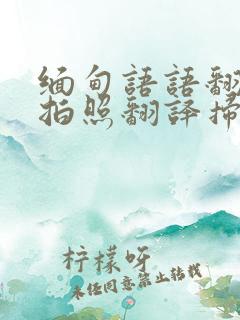 缅甸語語翻
拍照翻译掃
柠檬呀
未经同意禁止转载